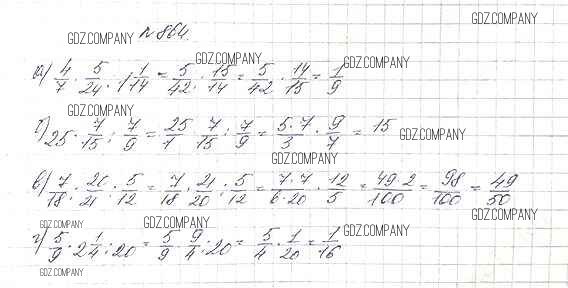 GDZ.COMPANY №864. GDZ.COMPANY
GDZ.COMPANY GDZ.COMPANY
а) 4/7 · 5/24 : 1 1/14 = 5/42 : 15/14 = 5/42 · 14/15 = 1/9
GDZ.COMPANY
б) 25 · 7/15 : 7/9 = 25/1 · 7/15 : 7/9 = 5·7/3 · 9/7 = 15 GDZ.COMPANY
GDZ.COMPANY
в) 7/18 : 20/21 : 5/12 = 7/18 · 21/20 : 5/12 = 7·7/6·20 · 12/5 = 49·2/100 = 98/100 = 49/50
GDZ.COMPANY GDZ.COMPANY GDZ.COMPANY
г) 5/9 · 2 1/4 : 20 = 5/9 · 9/4 : 20 = 5/4 · 1/20 = 1/16 GDZ.COMPANY
GDZ.COMPANY